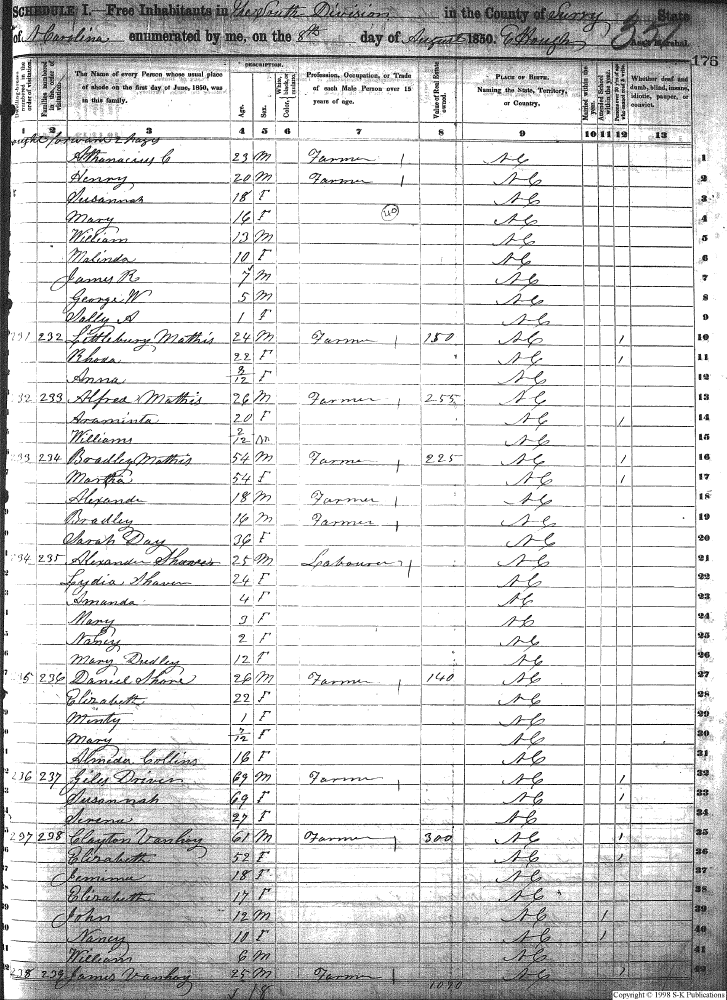 SCHEDULE I.—Free Inhabitants in The South Division in the County of Surry State
of N Carolina enumerated by me, on the 8th day of August 1850. C Hough Ass't Marshal.
331
175
Dwelling-houses numbered in the order of visitation. Families numbered in the order of visitation. The Name of every Person whose usual place of abode on the first day of June, 1850, was in this family. DESCRIPTION. Age. Sex. Color, White, black, or mulatto. Profession, Occupation, or Trade of each Male Person over 15 years of age. Value of Real Estate owned. PLACE OF BIRTH. Naming the State, Territory, or Country. Married within the year. Attended School within the year. Persons over 20 y'rs of age who cannot read & write. Whether deaf and dumb, blind, insane, idiotic, pauper, or convict.
1 2 3 4 5 6 7 8 9 10 11 12 13
forward 2 Pages
Athanacius C 23 M Farmer / NC 1
Henry 20 M Farmer / NC 2
Susannah 18 F NC 3
Mary 16 F 40 NC 4
William 13 M NC 5
Malinda 10 F NC 6
James R 7 M NC 7
George W 5 M NC 8
Sally A 1 F NC 9
231 232 Littlebury Mathis 24 M Farmer / 150 NC 1 10
Rhoda 22 F NC 1 11
Anna 3/12 F NC 12
32 233 Alfred Mathis 26 M Farmer / 255 NC 13
Araminta 20 F NC 1 14
Williams 2/12 M NC 15
33 234 Bradley Mathis 54 M Farmer / 225 NC 1 16
Martha 54 F NC 1 17
Alexander 18 M Farmer / NC 18
Bradley 16 M Farmer / NC 19
Sarah Day 36 F NC 20
234 235 Alexander Shaver 25 M Labourer / NC 21
Lydia Shaver 24 F NC 22
Amanda 4 F NC 23
Mary 3 F NC 24
Nancy 2 F NC 25
Mary Dudley 12 F NC 26
35 236 Daniel Shore 26 M Farmer / 140 NC 27
Elizabeth 22 F NC 28
Minty 1 F NC 29
Mary /12 F NC 30
Almeda Collins 16 F NC 31
236 237 Giles Driver 69 M Farmer / NC 1 32
Susannah 69 F NC 1 33
Serena 27 F NC 34
237 238 Clayton Vanhoy 61 M Farmer / 300 NC 1 35
Elizabeth 52 F NC 1 36
Jemima 18 F NC 37
Elizabeth 17 F NC 38
John 12 M NC 1 39
Nancy 10 F NC 1 40
William 6 M NC 41
238 239 James Vanhoy 25 M Farmer / NC 1 42
18
1070
Copyright © 1998 S-K Publications